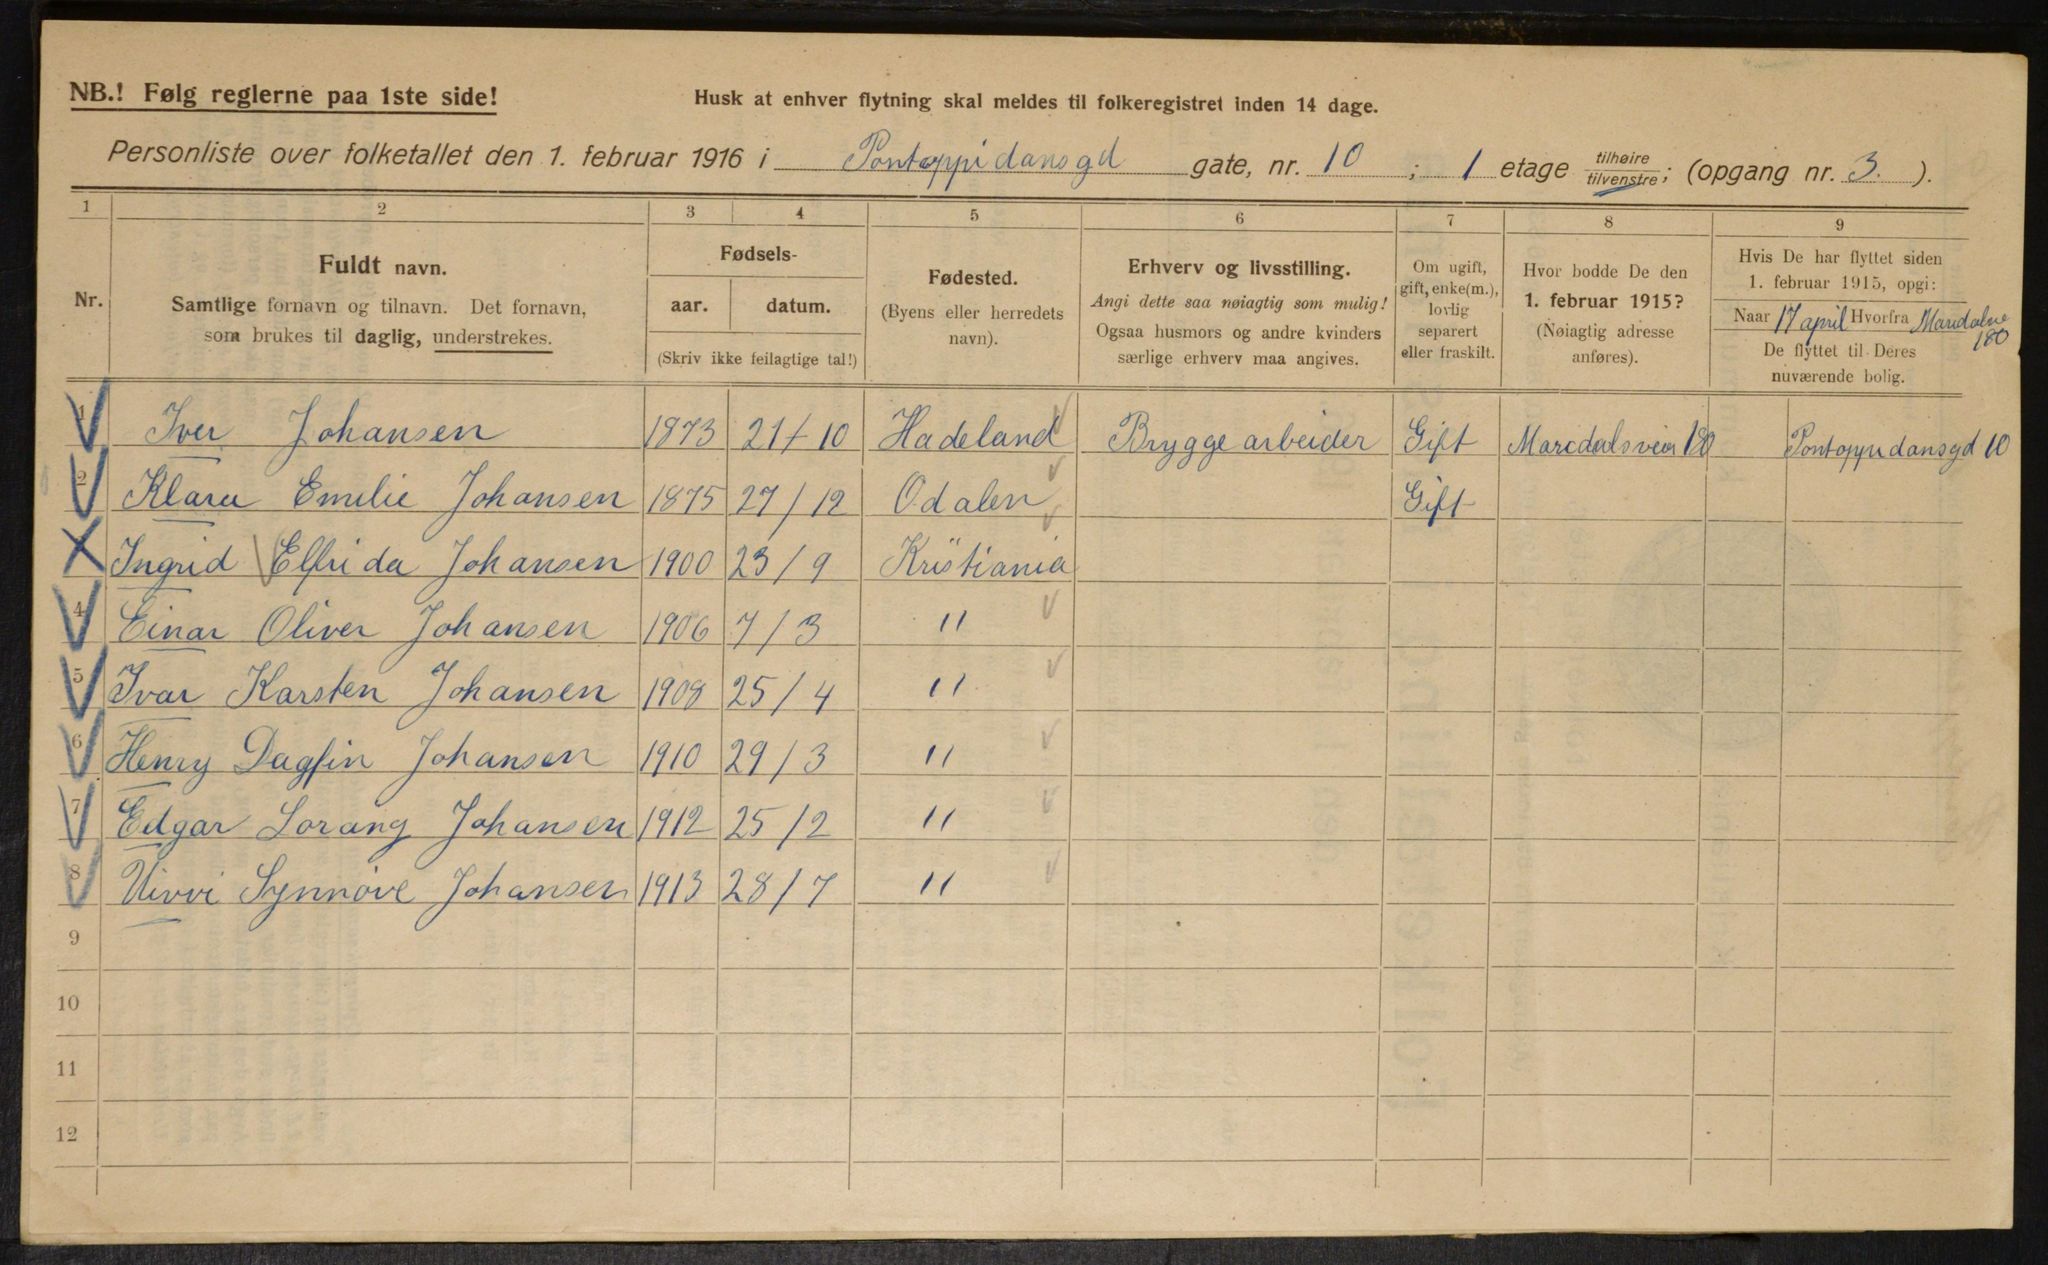 NB.! Følg reglerne paa 1ste side!
Husk at enhver flytning skal meldes til folkeregistret inden 14 dage.
Personliste over folketallet den 1. februar 1916 i Pontoppidansgd gate, nr. 10 ; 1 etage tilhøire tilvenstre; (opgang nr. 3. ).
1 2 3 4 5 6 7 8 9
Nr.
Fuldt navn.
Samtlige fornavn og tilnavn. Det fornavn,
som brukes til daglig, understrekes.
Fødsels-
aar. datum.
(Skriv ikke feilagtige tal!)
Fødested.
(Byens eller herredets
navn).
Erhverv og livsstilling.
Angi dette saa nøiagtig som mulig!
Ogsaa husmors og andre kvinders
særlige erhverv maa angives.
Om ugift,
gift, enke(m.),
lovlig
separert
eller fraskilt.
Hvor bodde De den
1. februar 1915?
(Nøiagtig adresse
anføres).
Hvis De har flyttet siden
1. februar 1915, opgi:
Naar 17 april Hvorfra Maridalsv
180
De flyttet til Deres
nuværende bolig.
1 Iver Johansen 1873 21/10 Hadeland Bryggearbeider Gift Maridalsveien 180 Pontoppidansgd 10
2 Klara Emilie Johansen 1875 27/12 Odalen Gift
Ingrid Elfrida Johansen 1900 23/9 Kristiania
4 Einar Oliver Johansen 1906 7/3 "
5 Ivar Karsten Johansen 1908 25/4 "
6 Henry Dagfin Johansen 1910 29/3 "
7 Edgar Lorang Johansen 1912 25/2 "
8 Vivvi Synnøve Johansen 1913 28/7 "
9
10
11
12